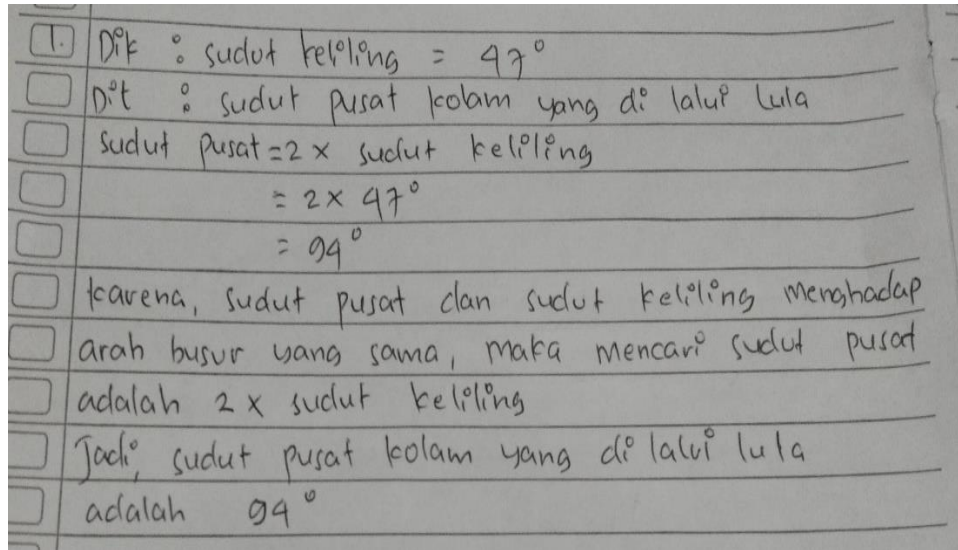 1. Dik : sudut keliling = 47°
Dit : sudut pusat kolam yang di lalui lula
sudut pusat = 2 x sudut keliling
= 2 x 47°
= 94°
karena, sudut pusat dan sudut keliling menghadap
arah busur yang sama, maka mencari sudut pusat
adalah 2 x sudut keliling
Jadi, sudut pusat kolam yang di lalui lula
adalah 94°